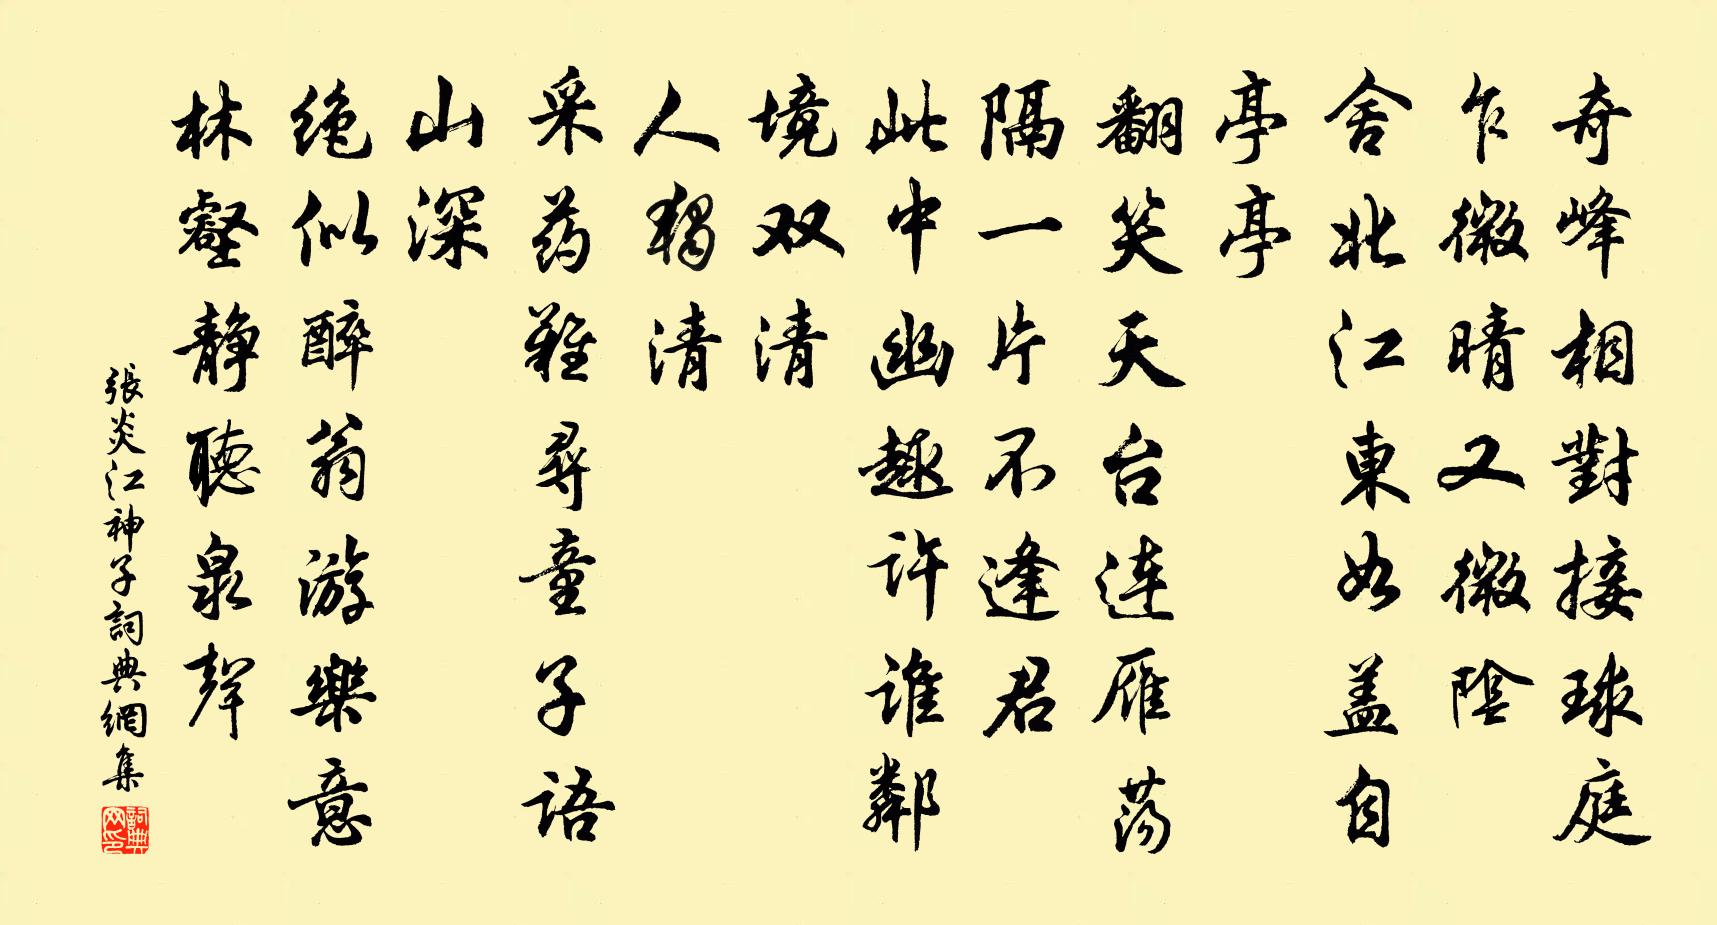 奇峰相對接珠庭
乍微晴又微陰
舍北江東如盖自
亭亭
翻笑天台連雁荡
隔一片不逢君
此中幽趣许谁鄰
境双清
人獨清
采药難尋童子語
山深
绝似醉翁游樂意
林壑靜聽泉聲
張炎江神子詞典網集
詞典网印